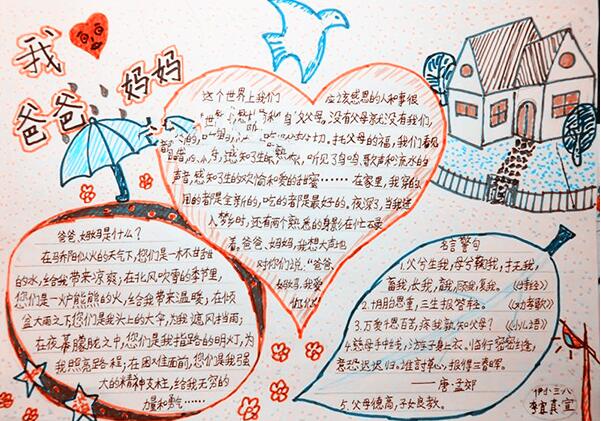 我
爸爸
妈妈
这个世界上我们 应该感恩的人和事很
父母,没有父母就没有我们,
切,托父母的福,我们看见
感知了生的 听见了鸟鸣、歌声和流水的
声音,感知了生的欢愉和爱的甜蜜……在家里,我穿的
用的者是全新的,吃的者是最好的,夜深了,当我进
入梦乡时,还有两个熟悉的身影在忙碌
着,爸爸、妈妈,我想大声地
对你们说:“爸爸、
妈妈,我爱
你们!”
爸爸、妈妈是什么?
在骄阳似火的天气下,您们是一杯甘甜
的水,给我带来凉爽;在北风吹雪的季节里,
您们是一炉熊熊的火,给我带来温暖;在倾
盆大雨之下您们是我头上的大伞,为我遮风挡雨;
在夜幕朦胧之中,您们是我指路的明灯,为
我照亮路程;在困难面前,您们是我强
大的精神支柱,给我无穷的
力量和勇气……
名言警句
1.父兮生我,母兮鞠我,抚我,
畜我,长我,育我,顾我,复我。《诗经》
2.十月胎恩重,三生报答轻。《劝孝歌》
3.万爱千恩百苦,疼我孰知父母?《小儿语》
4.慈母手中线,游子身上衣。临行密密缝,
意恐迟迟归。谁言寸草心,报得三春晖。
——唐·孟郊
5.父母德高,子女良教。
李宜真·宣